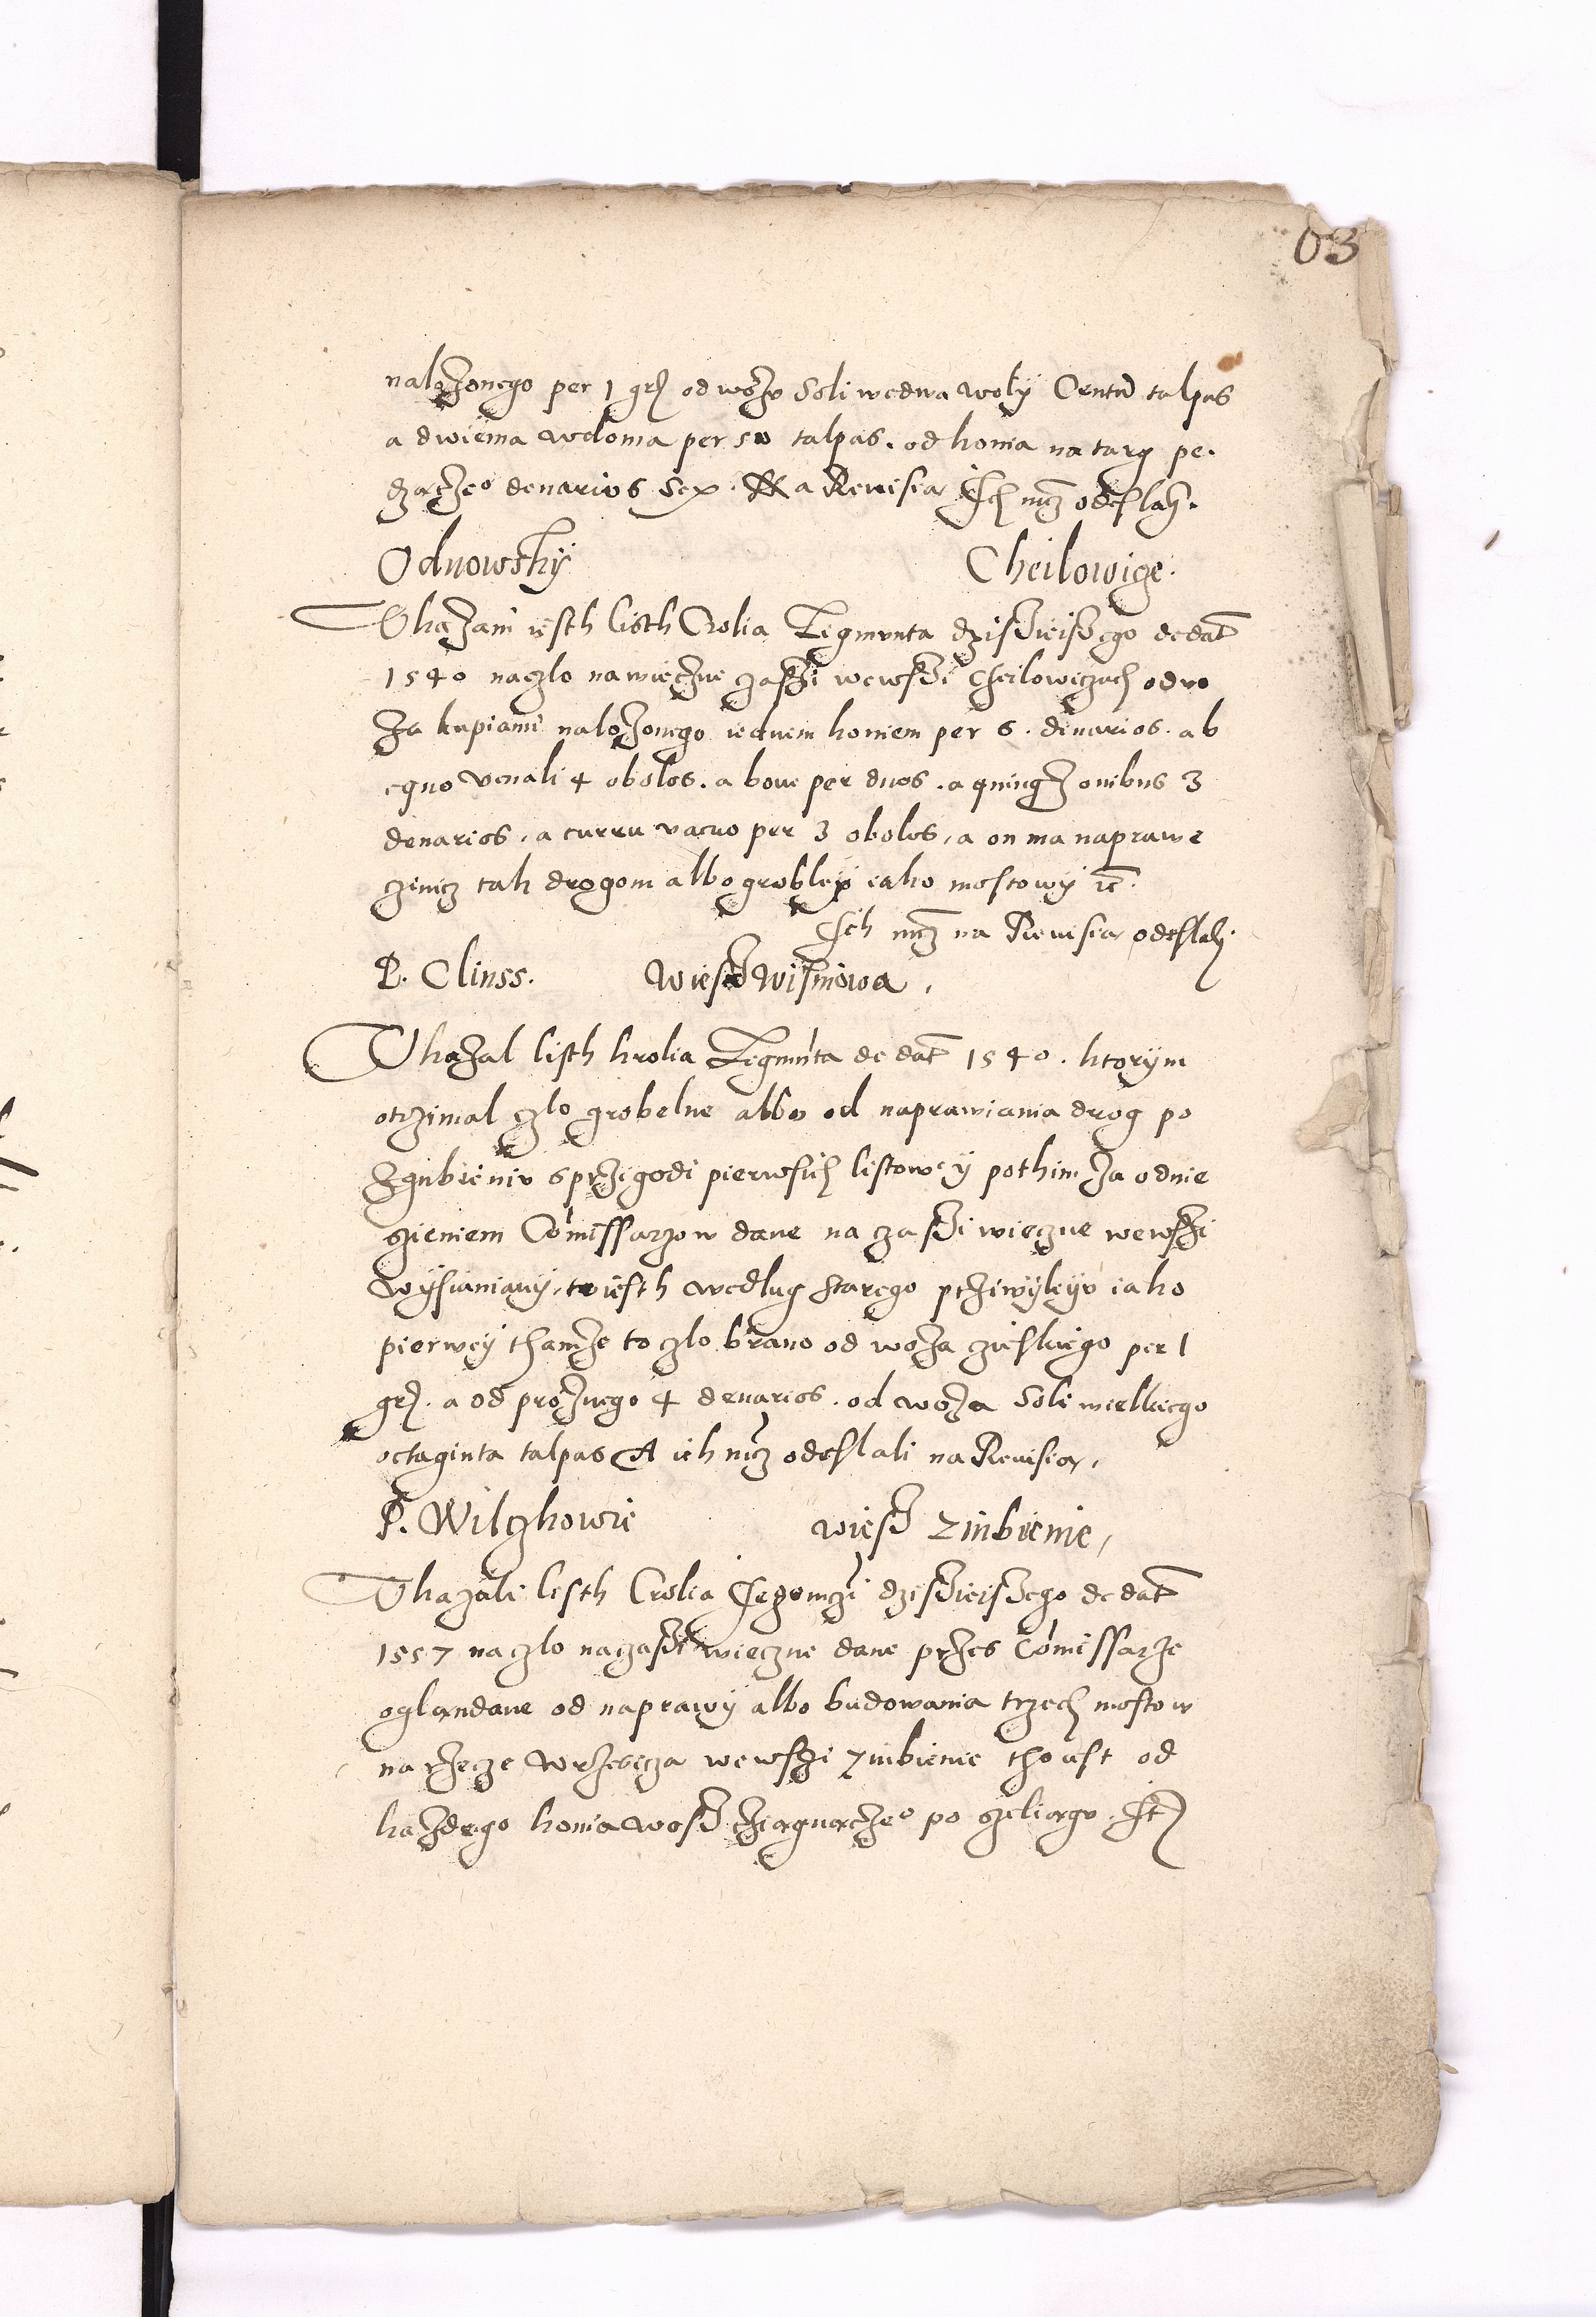 03
nalozonego per 1 grꝭ od wozv Soli wedwa woly Centū talpas
a dwiema wcloma per 50 talpas. od konia na targ pe.
dzączeo denarios Sex. Na Reuisią Ich mcz odeslaḣ.
Odnowsky Cheilowige.
Vkazani iesth listh Crolia Zegmvnta dzisieisego de dat̄
1540 na czlo na wieczne czassi wewssi Cheilowiczach od vo
za kupiami nalozonego iednem koniem per 6. denarios. ab
equo venali 4 obolos. a boue per duos. a quinqꝫ ouibus 3
denarios, a curru vacuo per 3 obolos, a on ma naprawe
czinicz tak drogom albo groblẏ iako mostowy ꝛc̄.
Ich mcz na Reuisią odeslaḣ.
P. Clinss. Wiess Wisniowa,
Vkazal listh krolia Zegmūta de dat̄ 1540. ktorym
otrzimal czlo grobelne albo od naprawiania drog po
zgubieniv sprzigodi pierwsich listow, y pothim za odnie
szieniem Cōmissarzow dane na czassi wieczne wewssi
Wysnianiany, to iesth wedlug starego przÿwyleyv iako
pierwey thamze to czlo brano od woza cziesskiego per 1
grꝭ. a od proznego 4 denarios. od woza Soli wielkiego
octaginta talpas A ich mcz odeslali na Reuisią,
P. Wilczkowie wiess Zinbienie,
Vkazali listh Crolia Segomczi dzisieisego de dat̄
1557 na czlo na czassi wieczne dane przes Cōmissarze
oglandane od naprawy albo budowania trzech mostow
na rzecze Wrzescza wewsszi Zinbienie tho iest od
kazdego konia woss cziągnączeo po szelągv. Itꝭ